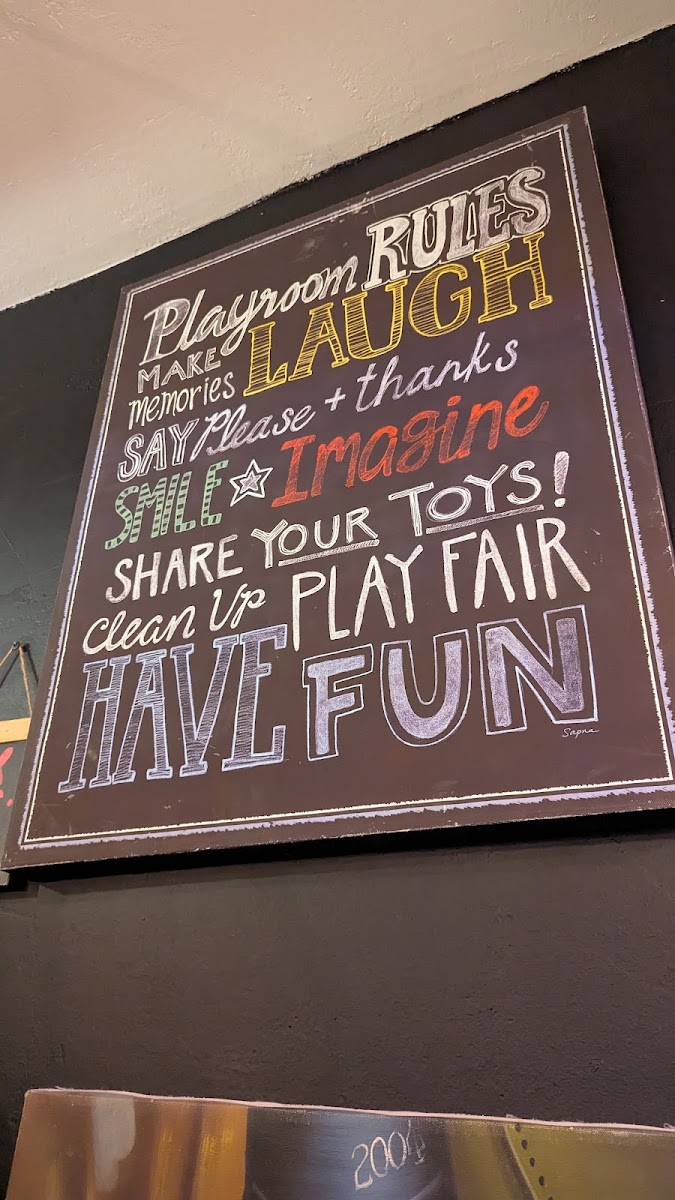 Playroom RULES
MAKE memories LAUGH
SAY Please + thanks
SMILE Imagine
SHARE YOUR TOYS!
Clean Up PLAY FAIR
HAVE FUN
Sapna
2004